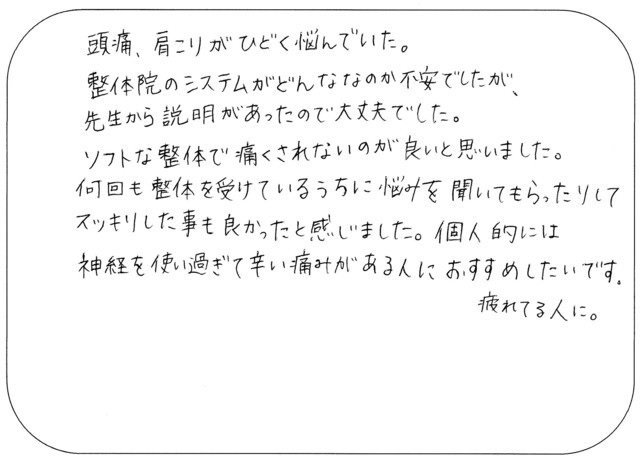 頭痛、肩こりがひどく悩んでいた。
整体院のシステムがどんななのか不安でしたが、
先生から説明があったので大丈夫でした。
ソフトな整体で痛くされないのが良いと思いました。
何回も整体を受けているうちに悩みを聞いてもらったりして
スッキリした事も良かったと感じました。個人的には
神経を使い過ぎて辛い痛みがある人におすすめしたいです。
疲れてる人に。